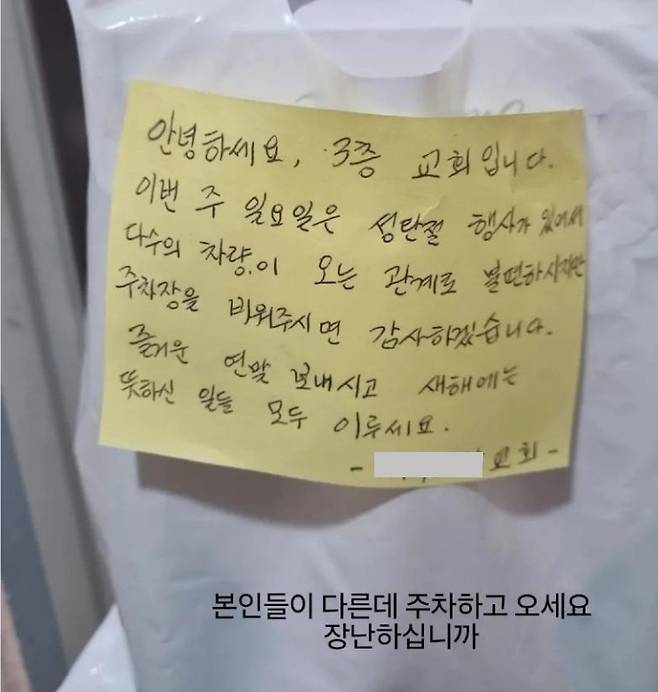 안녕하세요, 3층 교회입니다.
이번 주 일요일은 성탄절 행사가 있어서
다수의 차량이 오는 관계로 불편하시지만
주차장을 비워주시면 감사하겠습니다.
즐거운 연말 보내시고 새해에는
뜻하신 일들 모두 이루세요.
- 교회 -
본인들이 다른데 주차하고 오세요
장난하십니까